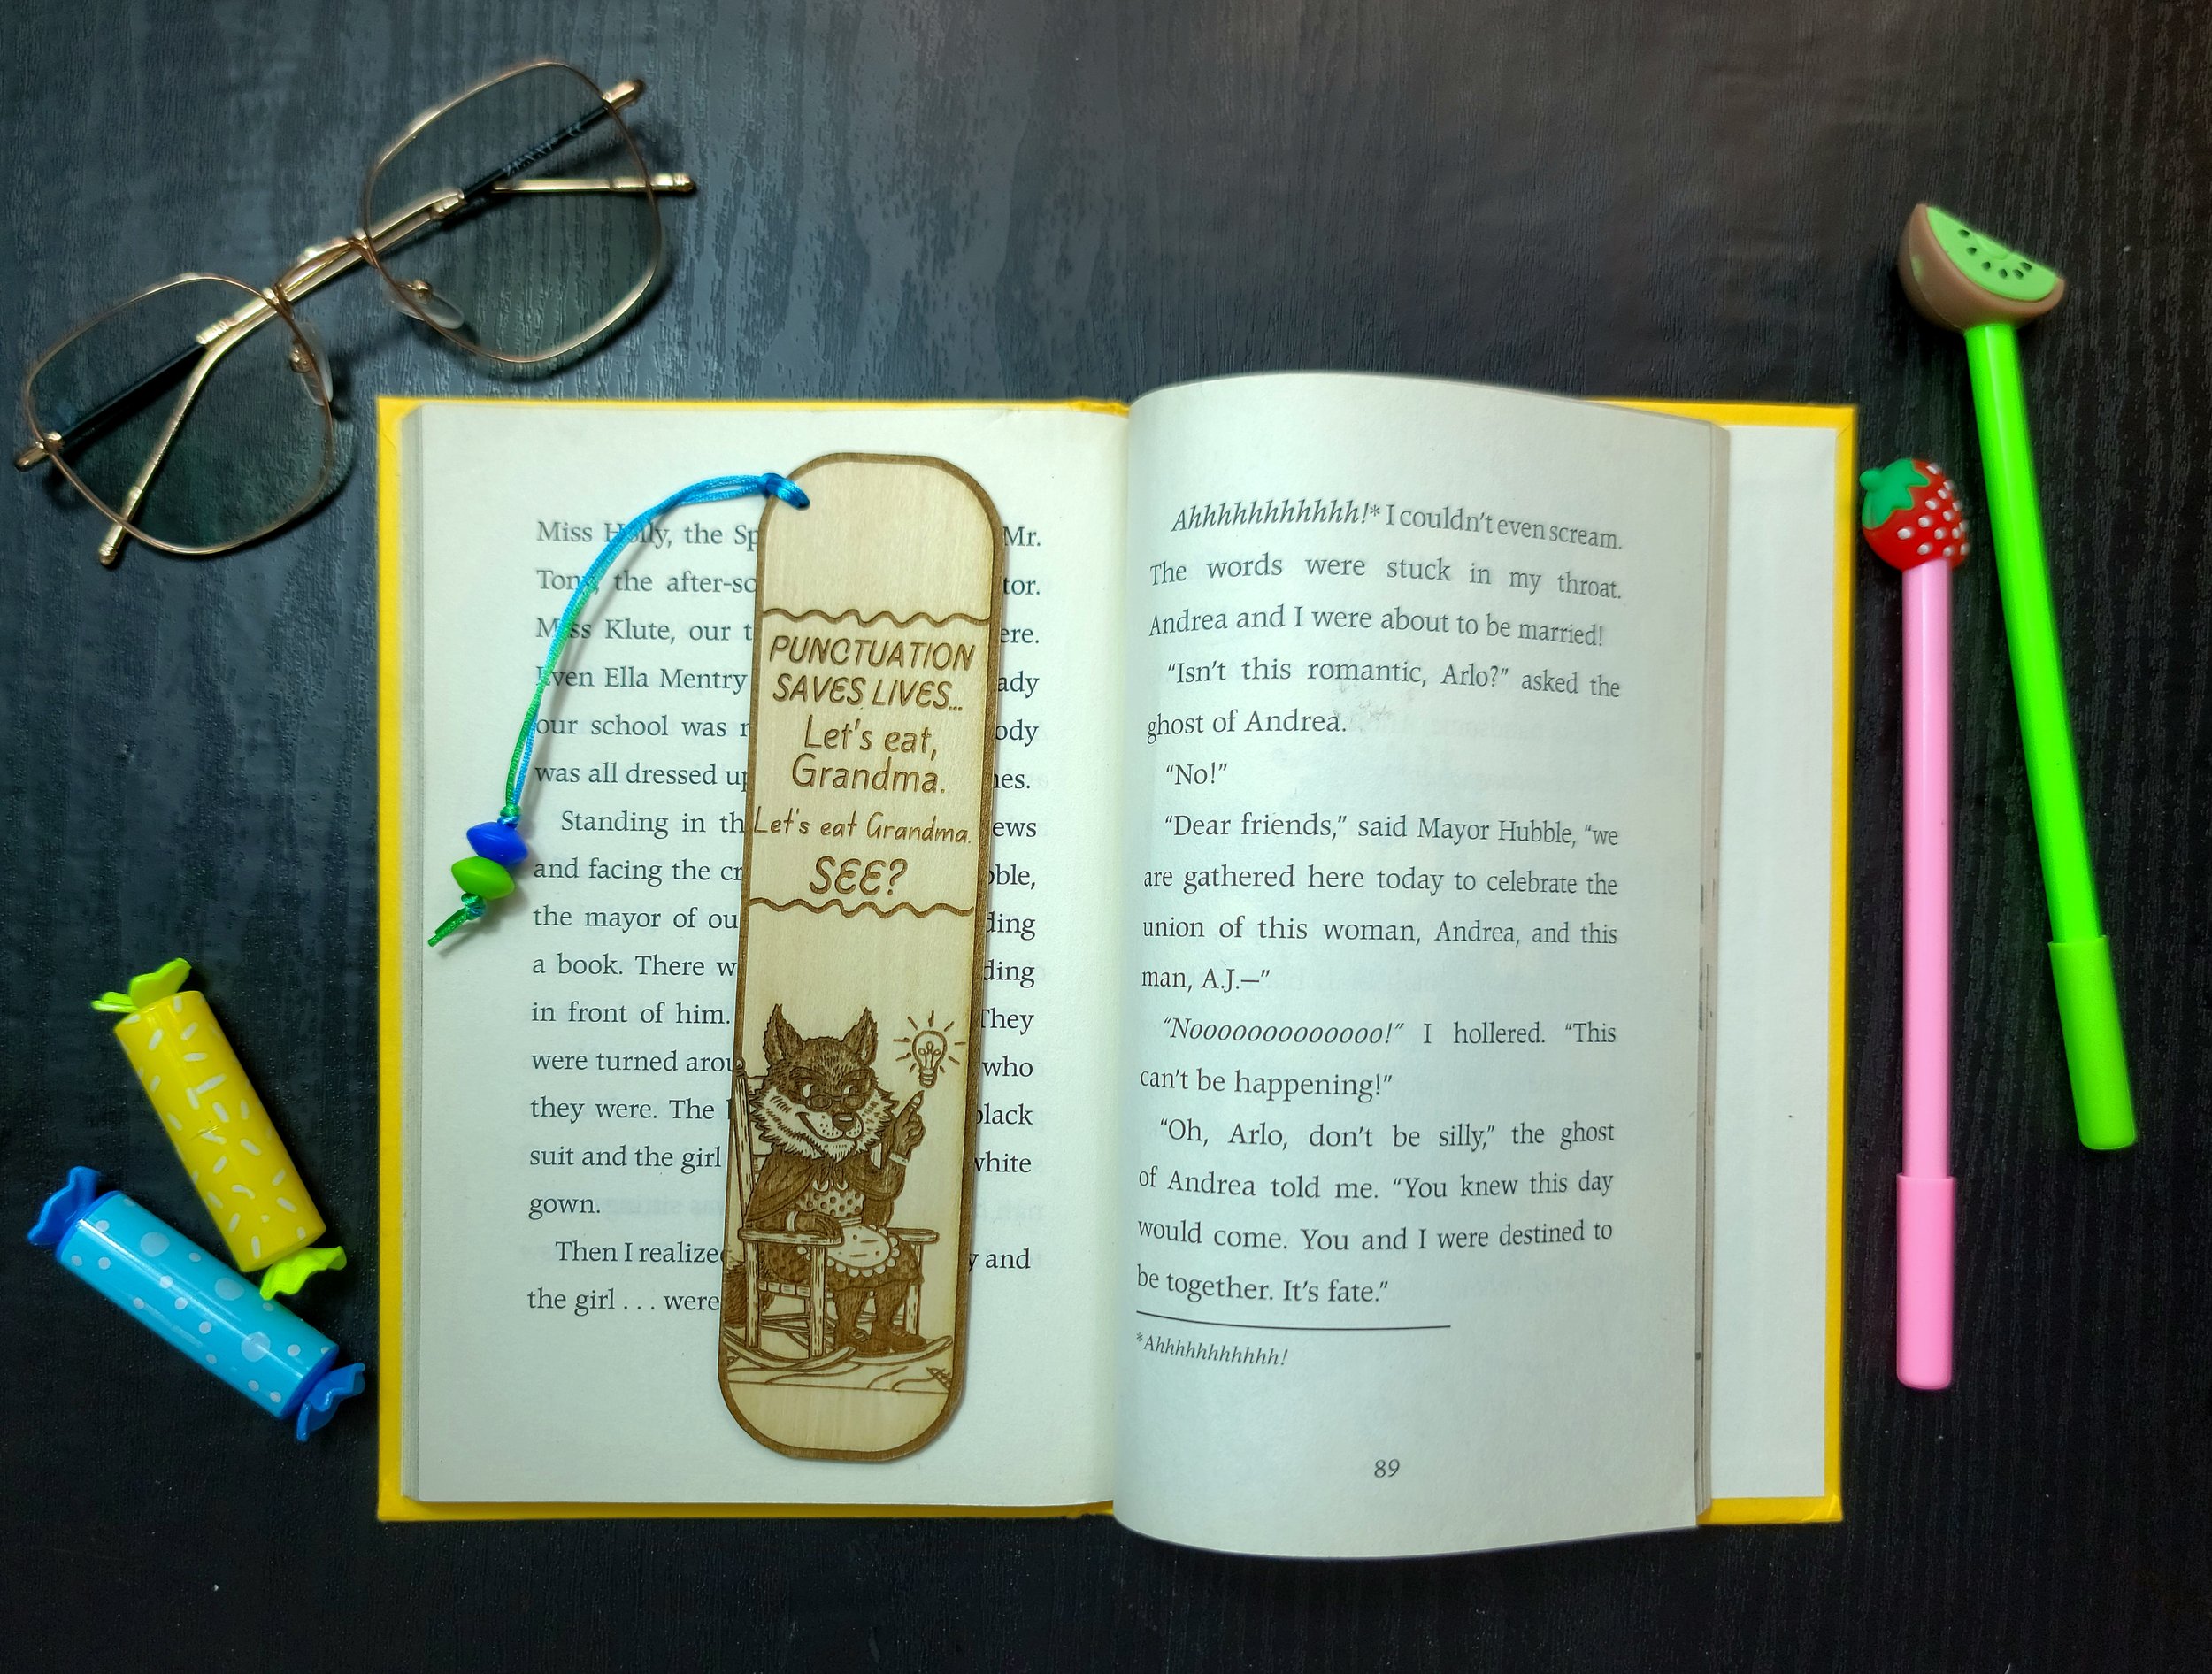 Miss Holly, the Mr.
Tony, the tor.
Miss Klute, our ere.
Even Ella Mentry ady
our school was ody
was all dressed
Standing in ews
and facing the
the mayor of ding
a book. There ding
in front of him. They
were turned who
they were. The black
suit and the girl white
gown.
Then I realized and
the girl . . . were
PUNCTUATION
SAVES LIVES...
Let's eat,
Grandma.
Let's eat Grandma.
SEE?
Ahhhhhhhhhhh!* I couldn't even scream.
The words were stuck in my throat.
Andrea and I were about to be married!
“Isn't this romantic, Arlo?” asked the
ghost of Andrea.
“No!”
“Dear friends,” said Mayor Hubble, “we
are gathered here today to celebrate the
union of this woman, Andrea, and this
man, A.J.—”
“Noooooooooooooo!” I hollered. “This
can't be happening!”
“Oh, Arlo, don't be silly,” the ghost
of Andrea told me. “You knew this day
would come. You and I were destined to
be together. It's fate.”
*Ahhhhhhhhhhh!
89